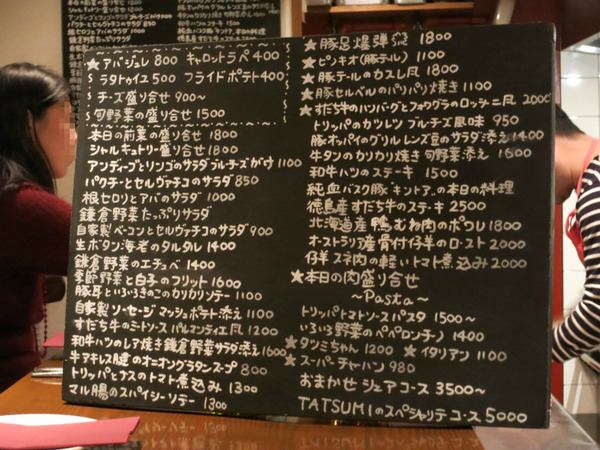 ★アバジュレ 800 キャロットラペ 400
ラタトゥイユ 500 フライドポテト 400
チーズ盛り合せ 900〜
旬野菜の盛り合せ 1500
本日の前菜の盛り合せ 1800
シャルキュトリー盛り合せ 1800
アンディーブとリンゴのサラダブルーチーズがけ 1100
パクチーとセルヴァチコのサラダ 850
根セロリとアバのサラダ 1000
鎌倉野菜たっぷりサラダ
自家製ベーコンとセルヴァチコのサラダ 900
生ボタン海老のタルタル 1400
鎌倉野菜のエチュベ 1400
季節野菜と白子のフリット 1600
豚耳といろいろきのこのカリカリソテー 1100
自家製ソーセージマッシュポテト添え 1100
すだち牛のミートソースパルマンティエ風 1200
和牛ハツのレア焼き鎌倉野菜サラダ添え 1600
牛アキレス腱のオニオングラタンスープ 800
トリッパとナスのトマト煮込み 1300
マル腸のスパイシーソテー 1300
★豚足爆弾 1800
★ピンキオ(豚テル) 1100
★豚テールのカスレ風 1800
★豚セルベルのパリパリ焼き 1100
★すだち牛のハンバーグとフォアグラのロッシーニ風 2000
トリッパのカツレツ ブルーチーズ風味 950
豚オッパイのグリル レンズ豆のサラダ添え 1400
牛タンのカリカリ焼き 旬野菜添え 1600
和牛ハツのステーキ 1500
純血バスク豚"キントア"の本日の料理
徳島産すだち牛のステーキ 2500
北海道産 鴨むね肉のポワレ 1800
オーストラリア産骨付仔羊のロースト 2000
仔羊スネ肉の軽いトマト煮込み 2000
★本日の肉盛り合せ
〜Pasta〜
トリッパトマトソースパスタ 1500〜
いろいろ野菜のペペロンチーノ 1400
★タツミちゃん 1200 ★イタリアン 1100
★スーパーチャーハン 980
おまかせ シェアコース 3500〜
TATSUMIのスペシャリテコース 5000